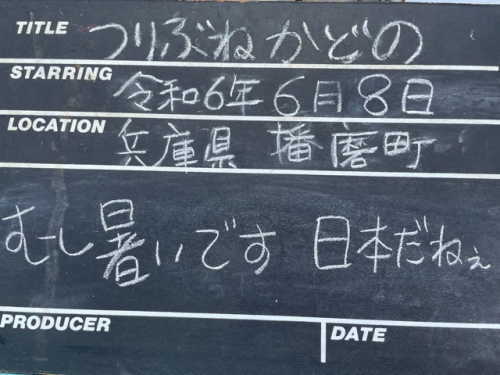 TITLE つりぶねかどの
STARRING 令和6年6月8日
LOCATION 兵庫県 播磨町
むーし暑いです 日本だねぇ
PRODUCER DATE